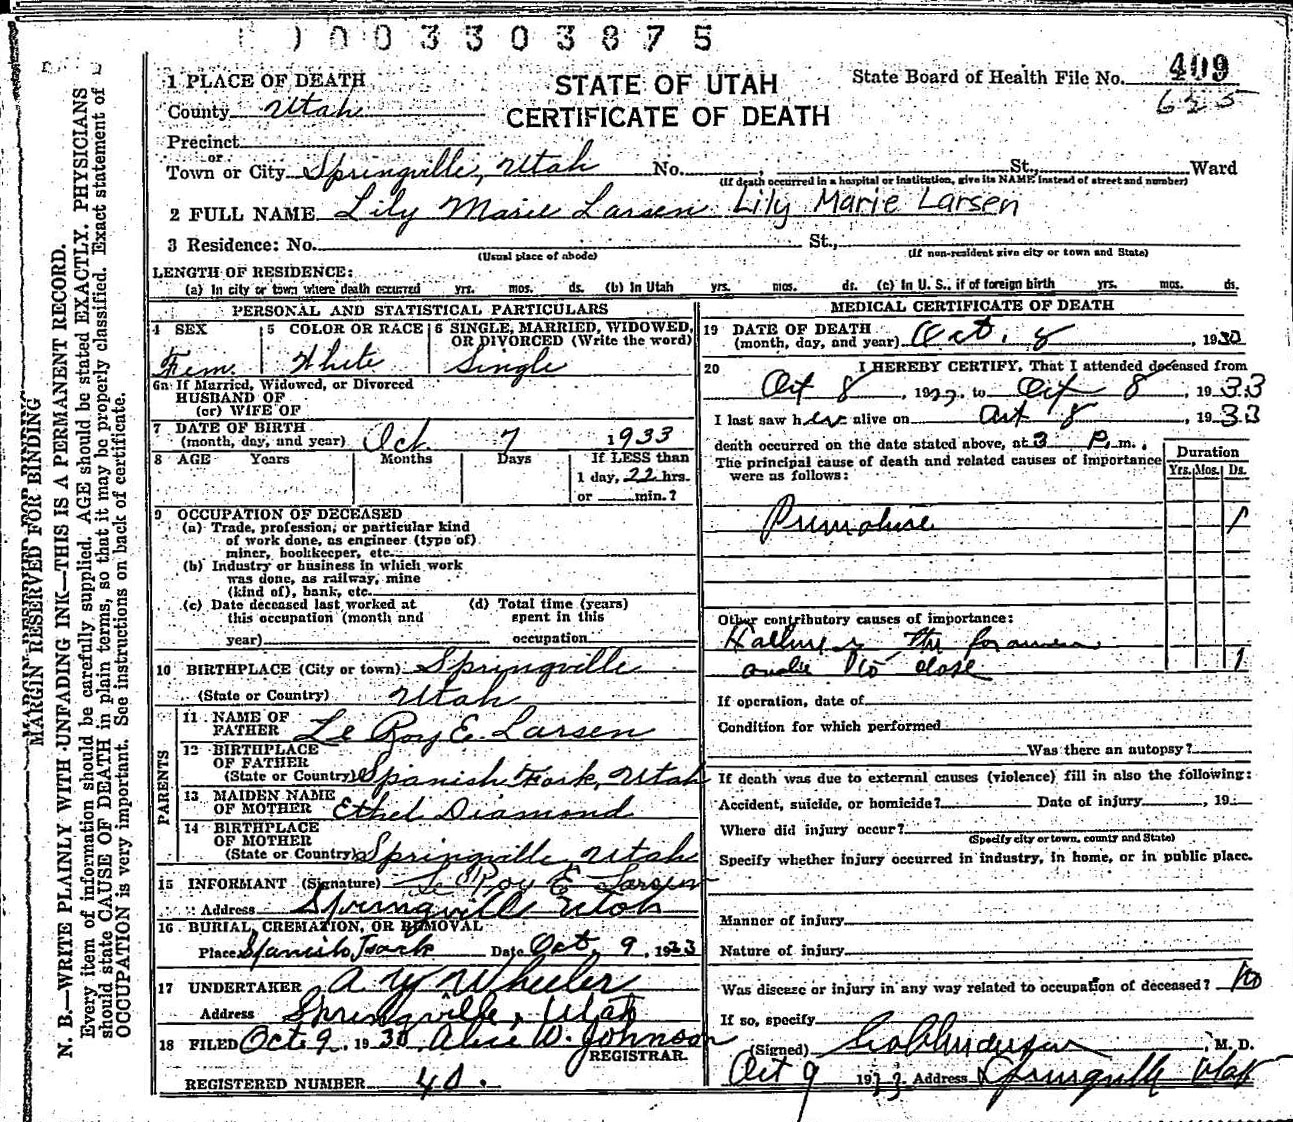 0 0 3 3 0 3 8 7 5
1 PLACE OF DEATH
STATE OF UTAH
State Board of Health File No. 409
County Utah
CERTIFICATE OF DEATH
625
Precinct
or
Town or City Springville, Utah No. , St., Ward
(If death occurred in a hospital or institution, give its NAME instead of street and number)
2 FULL NAME Lily Marie Larsen Lily Marie Larsen
3 Residence: No. St.,
(Usual place of abode) (If non-resident give city or town and State)
LENGTH OF RESIDENCE:
(a) In city or town where death occurred yrs. mos. ds. (b) In Utah yrs. mos. ds. (c) In U. S., if of foreign birth yrs. mos. ds.
PERSONAL AND STATISTICAL PARTICULARS
4 SEX
Fem.
5 COLOR OR RACE
White
6 SINGLE, MARRIED, WIDOWED,
OR DIVORCED (Write the word)
Single
6a If Married, Widowed, or Divorced
HUSBAND OF
(or) WIFE OF
7 DATE OF BIRTH
(month, day, and year) Oct. 7 1933
8 AGE Years Months Days If LESS than
1 day, 22 hrs.
or min.?
9 OCCUPATION OF DECEASED
(a) Trade, profession, or particular kind
of work done, as engineer (type of)
miner, bookkeeper, etc.
(b) Industry or business in which work
was done, as railway, mine
(kind of), bank, etc.
(c) Date deceased last worked at
this occupation (month and
year)
(d) Total time (years)
spent in this
occupation
10 BIRTHPLACE (City or town) Springville
(State or Country) Utah
PARENTS
11 NAME OF
FATHER Le Roy E. Larsen
12 BIRTHPLACE
OF FATHER
(State or Country) Spanish Fork, Utah
13 MAIDEN NAME
OF MOTHER Ethel Diamond
14 BIRTHPLACE
OF MOTHER
(State or Country) Springville, Utah
15 INFORMANT (Signature) Le Roy E Larsen
Address Springville Utah
16 BURIAL, CREMATION, OR REMOVAL
Place Spanish Fork Date Oct. 9, 1933
17 UNDERTAKER A Y Wheeler
Address Springville, Utah
18 FILED Oct. 9, 1933 Alice W. Johnson
REGISTRAR.
REGISTERED NUMBER 40.
MEDICAL CERTIFICATE OF DEATH
19 DATE OF DEATH
(month, day, and year) Oct. 8, 1933
20 I HEREBY CERTIFY, That I attended deceased from
Oct 8, 1933, to Oct 8, 1933
I last saw her alive on Oct 8, 1933
death occurred on the date stated above, at 3 P. m.,
The principal cause of death and related causes of importance
were as follows:
Duration
Yrs. Mos. Ds.
Premature 1
Other contributory causes of importance:
the foramen
ovale to close 1
If operation, date of
Condition for which performed
Was there an autopsy?
If death was due to external causes (violence) fill in also the following:
Accident, suicide, or homicide? Date of injury , 19
Where did injury occur?
(Specify city or town, county and State)
Specify whether injury occurred in industry, in home, or in public place.
Manner of injury
Nature of injury
Was disease or injury in any way related to occupation of deceased? No
If so, specify
(Signed) Anderson, M. D.
Oct 9 1933 Address Springville Utah
MARGIN RESERVED FOR BINDING
N. B.—WRITE PLAINLY WITH UNFADING INK—THIS IS A PERMANENT RECORD.
Every item of information should be carefully supplied. AGE should be stated EXACTLY. PHYSICIANS
should state CAUSE OF DEATH in plain terms, so that it may be properly classified. Exact statement of
OCCUPATION is very important. See instructions on back of certificate.